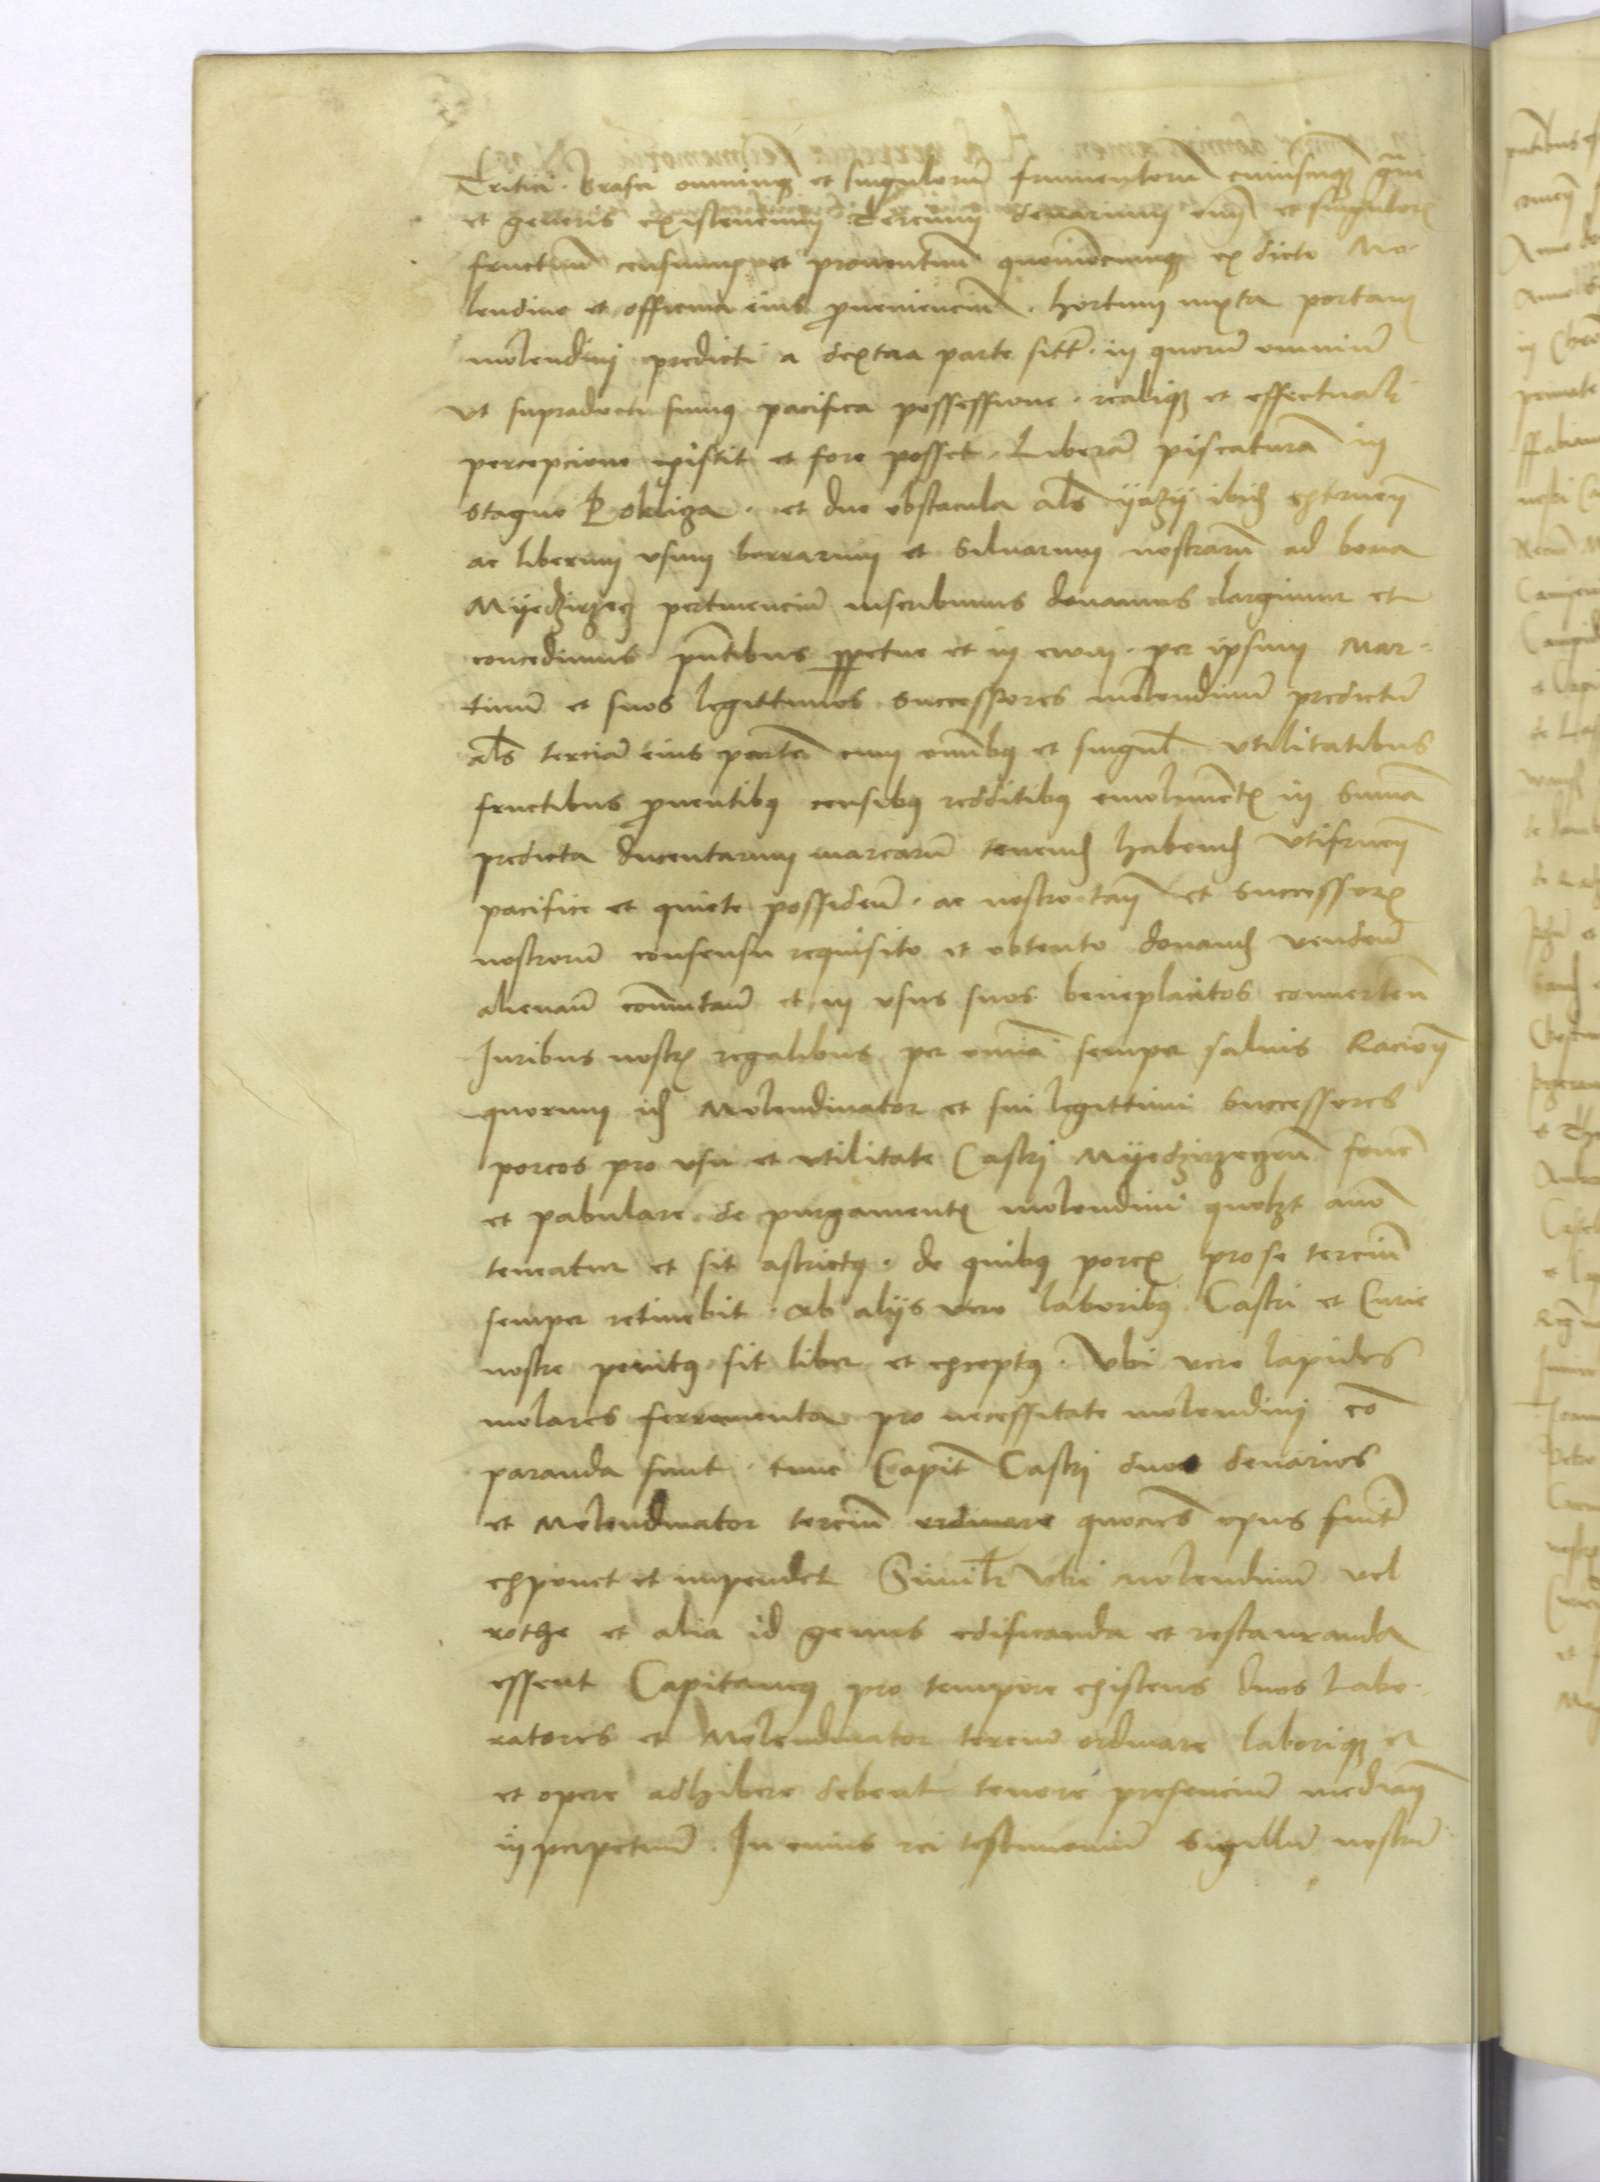 Tritici · brasei omniumq et singulorum frumentorum cuiuscunq grani
et generis existencium tercium denarium omnium et singulorum
fructuum censuumq et proventuum quomodocumq ex dicto Mo-
lendino et officina eius proveniencium · hortum iuxta portam
molendini predicti a dextra parte situm · in quorum omnium
ut supradictum sumus pacifica possessione · realiq et effectuali
percepcione existit et fore posset · Liberam piscaturam in
stagno Pokliza · et duo obstacula als yazy ibidem extruend
ac liberum usum borrarum et silvarum nostrarum ad bona
Myedzirzecz pertinencium inscribimus donamus elargimur et
concedimus pntibus perpetue et in evum · per ipsum Mar-
tinum et suos legittimos successores molendinum predictum
als terciam eius partem cum omnibus et singulis utilitatibus
fructibus proventibus censibus redditibus emolimentis in summa
predicta ducentarum marcarum tenend habend utifruend
pacifice et quiete possidend · ac nostro tamen et successorum
nostrorum consensu requisito et obtento donand vendend
alienand commutand et in usus suos beneplacitos convertend
Iuribus nostris regalibus per omnia semper salvis Racione
quorum idem Molendinator et sui legittimi successores
porcos pro usu et utilitate Castri Myedzirzeczen fovere
et pabulare de purgamentis molendini quolibet anno
teneatur et sit astrictus · de quibus porcis pro se tercium
semper retinebit · ab aliis vero laboribus Castri et Curie
nostre penitus sit liber et exceptus · Ubi vero lapides
molares ferramenta pro necessitate molendini com
paranda sunt · tunc Capitaneus Castri duos denarios
et Molendinator tercium ordinare quociens opus fuerit
exponet et impendet Similiter ubi molendinum vel
rothe et alia id genus edificanda et restauranda
essent Capitaneus pro tempore existens duos Labo-
ratores et Molendinator tercium ordinare laboriq et
et opere adhibere debent tenore presencium mediante
in perpetuum · In cuius rei testimonium Sigillum nostrum